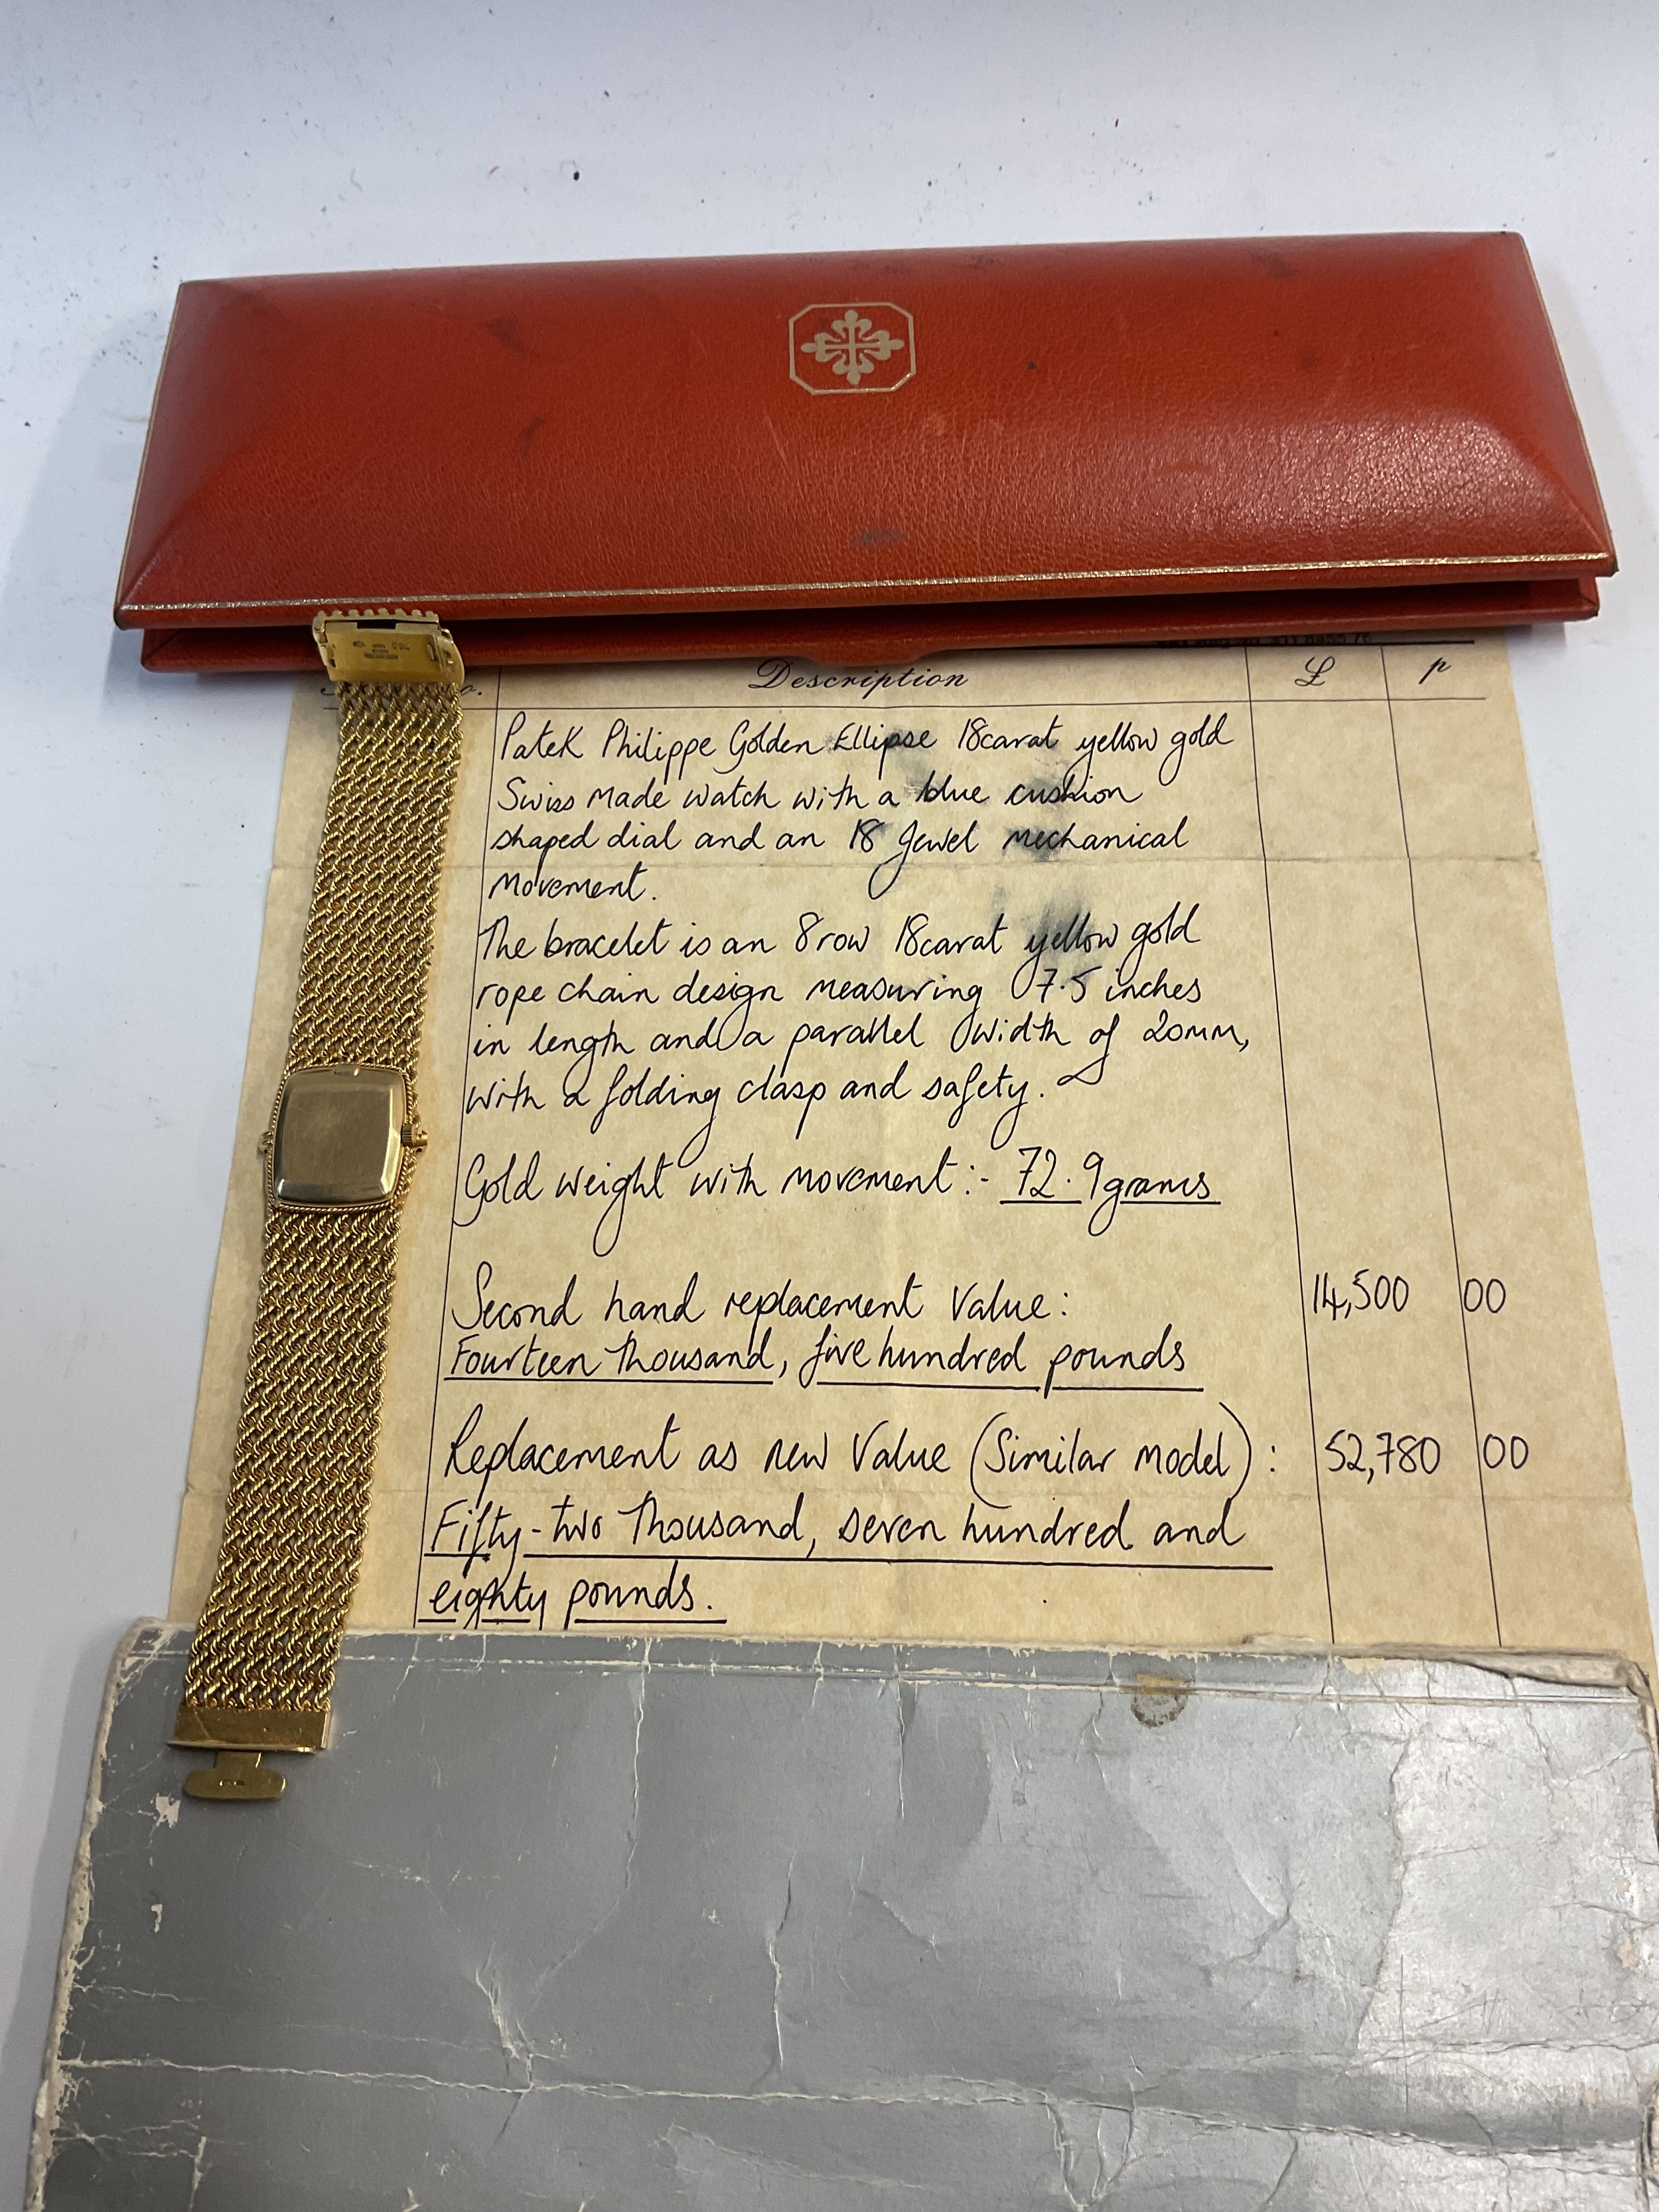 Description £ p
Patek Philippe Golden Ellipse 18carat yellow gold
Swiss made watch with a blue cushion
shaped dial and an 18 Jewel mechanical
movement.
The bracelet is an 8 row 18carat yellow gold
rope chain design measuring 7.5 inches
in length and a parallel width of 20mm,
with a folding clasp and safety.
Gold weight with movement:- 72.9grams
Second hand replacement Value: 14,500 00
Fourteen Thousand, five hundred pounds
Replacement as new Value (Similar model): 52,780 00
Fifty-two Thousand, seven hundred and
eighty pounds.